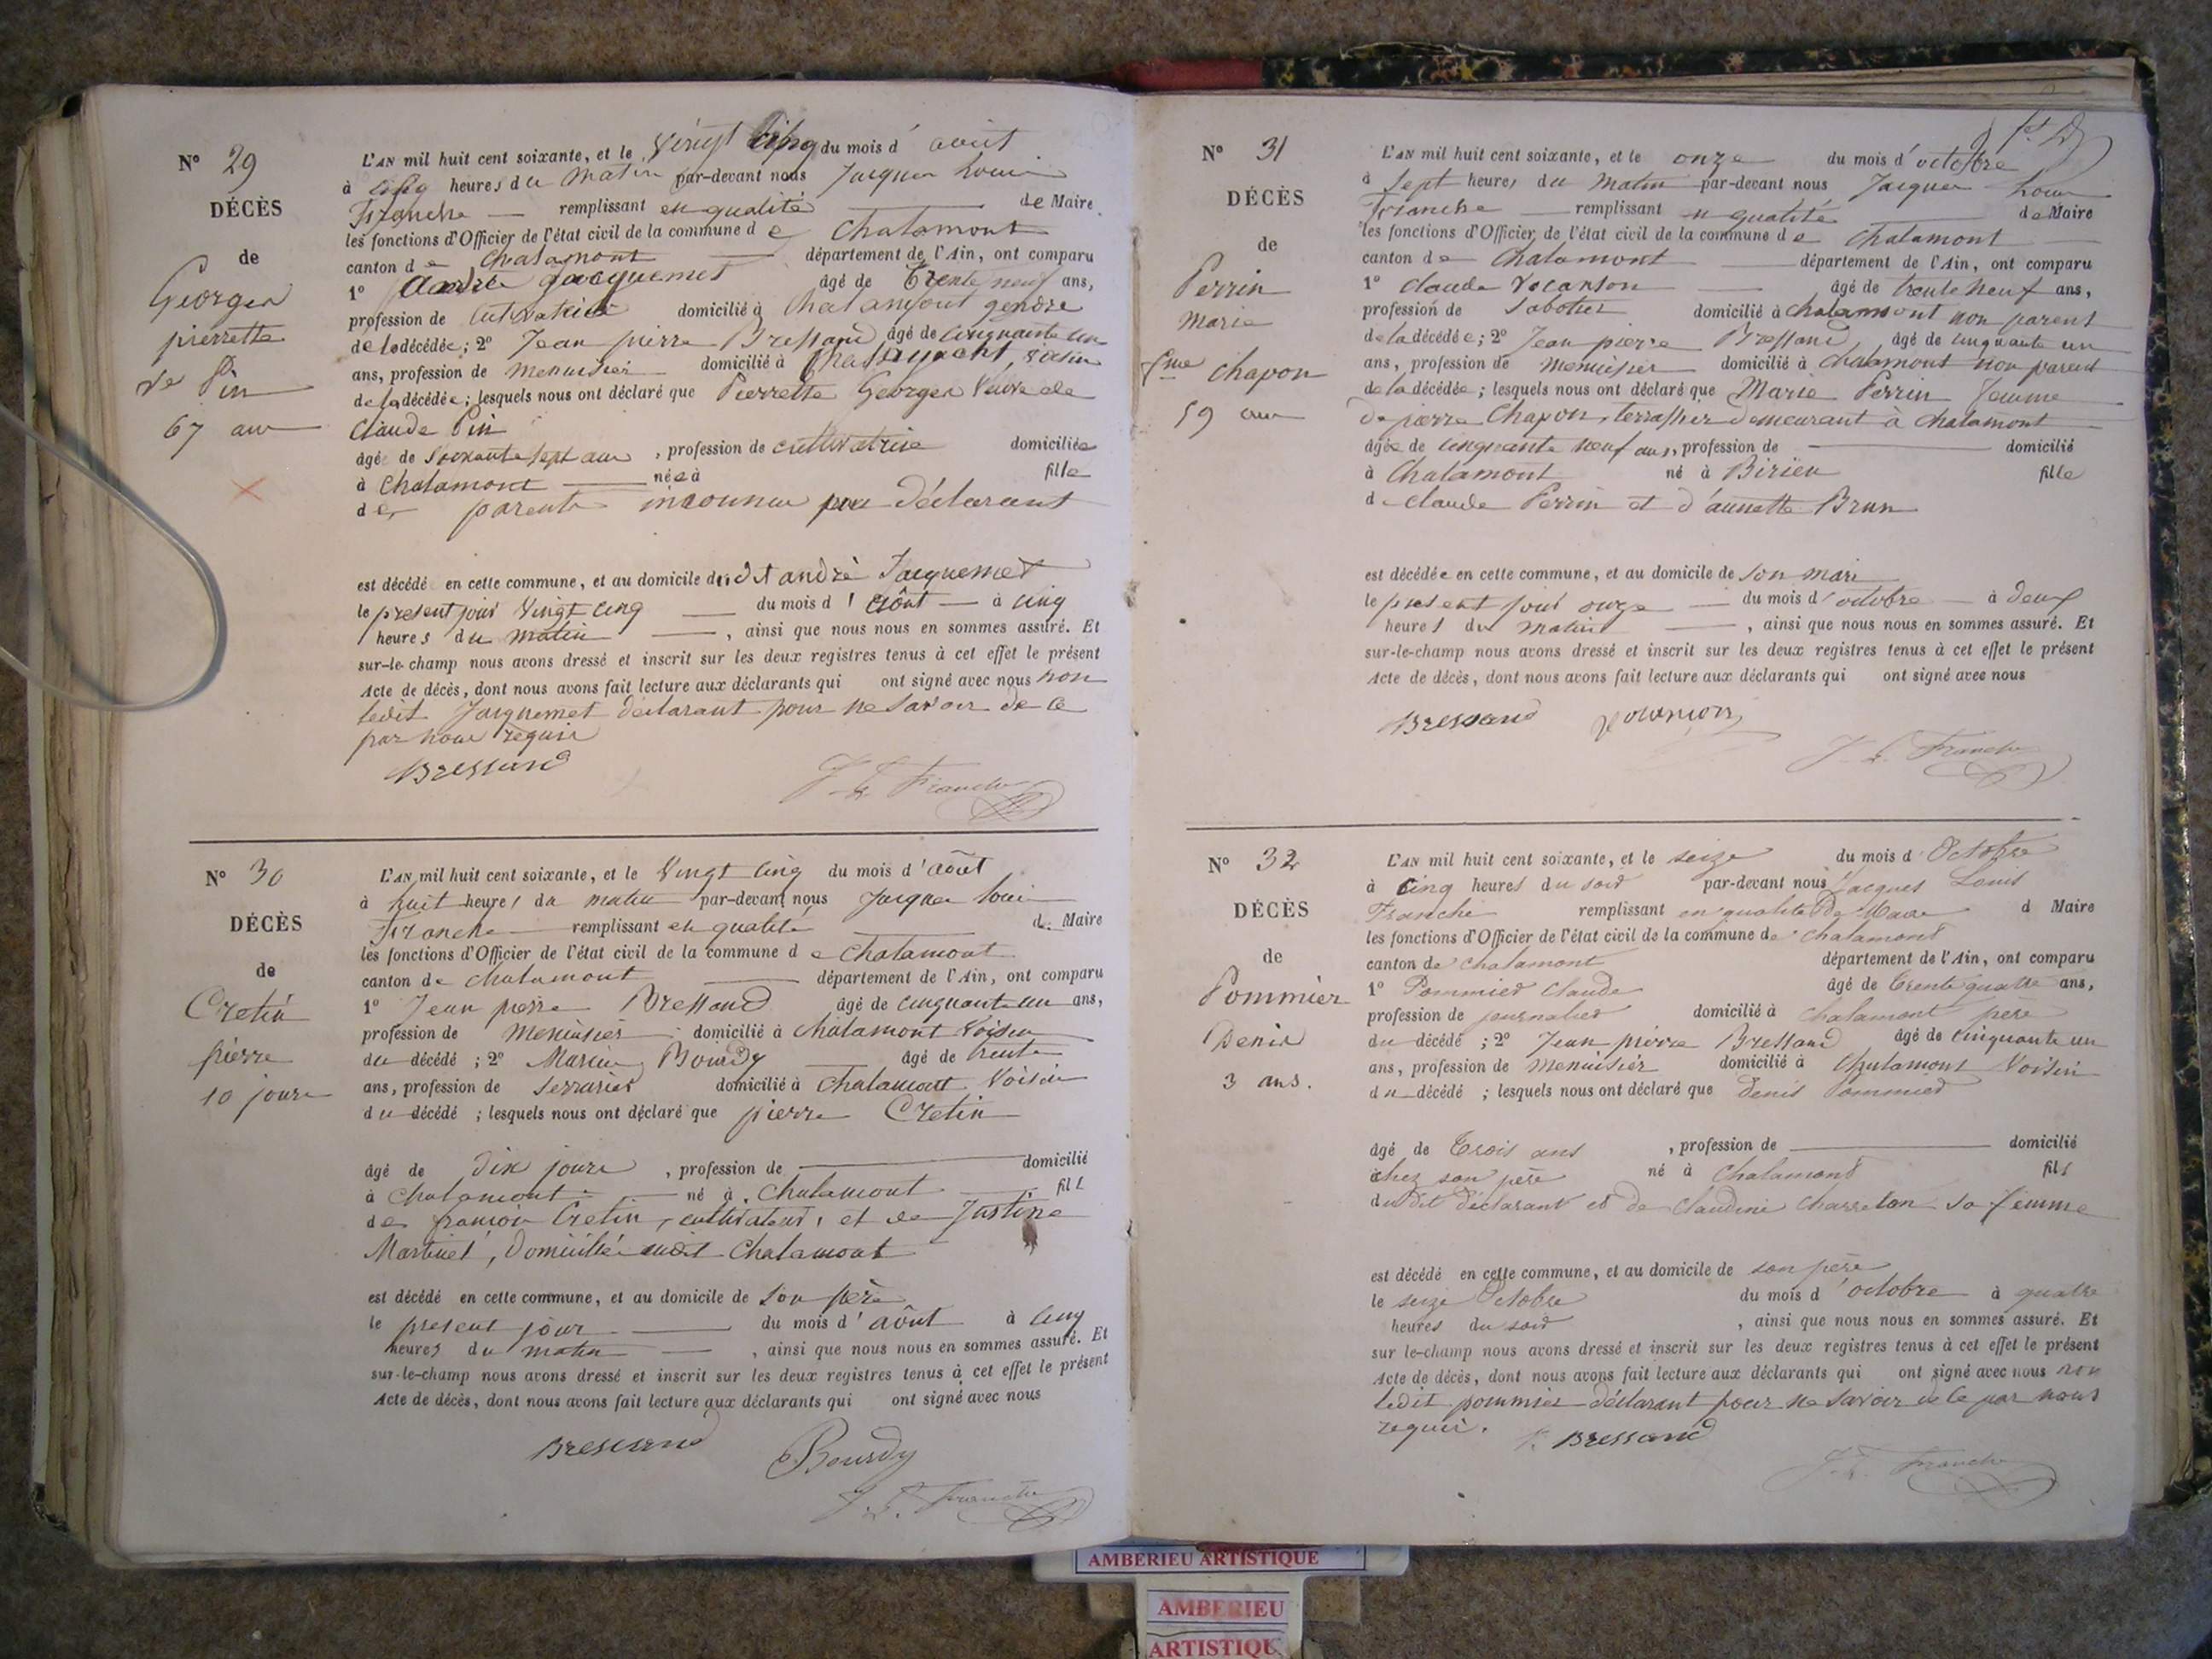 N° 29
DÉCÈS
de
Georges
pierrette
ve Pin
67 ans
L'AN mil huit cent soixante, et le vingt cinq du mois d' août
à cinq heures du matin par-devant nous Jacques Louis
Franche remplissant en qualité de Maire
les fonctions d'Officier de l'état civil de la commune de Chalamont
canton de Chalamont département de l'Ain, ont comparu
1° André Jacquemet âgé de Trente neuf ans,
profession de domicilié à Chalamont gendre
de la décédée; 2° Jean pierre Bressand âgé de cinquante un
ans, profession de menuisier domicilié à Chalamont, voisin
de la décédée; lesquels nous ont déclaré que Pierrette Georges Veuve de
Claude Pin
âgée de soixante sept ans, profession de cultivatrice domiciliée
à Chalamont née à fille
de parents inconnus déclarant
est décédé en cette commune, et au domicile du dit andré Jacquemet
le présent jour vingt cinq du mois d'août à cinq
heures du matin, ainsi que nous nous en sommes assuré. Et
sur-le-champ nous avons dressé et inscrit sur les deux registres tenus à cet effet le présent
Acte de décès, dont nous avons fait lecture aux déclarants qui ont signé avec nous non
ledit Jacquemet déclarant pour ne savoir de ce
par nous requis
Bressand
J. L. Franche
N° 30
DÉCÈS
de
Cretin
pierre
10 jours
L'AN mil huit cent soixante, et le Vingt cinq du mois d'août
à huit heures du matin par-devant nous Jacques Louis
Franche remplissant en qualité de Maire
les fonctions d'Officier de l'état civil de la commune de Chalamont
canton de Chalamont département de l'Ain, ont comparu
1° Jean pierre Bressand âgé de cinquante un ans,
profession de menuisier domicilié à Chalamont Voisin
du décédé; 2° Marin Bourdy âgé de trente
ans, profession de serrurier domicilié à Chalamont Voisin
du décédé; lesquels nous ont déclaré que pierre Cretin
âgé de dix jours, profession de domicilié
à Chalamont né à Chalamont fils
de françois Cretin, cultivateur, et de Justine
Martinet, Domiciliés audit Chalamont
est décédé en cette commune, et au domicile de son père
le présent jour du mois d'août à cinq
heures du matin, ainsi que nous nous en sommes assuré. Et
sur-le-champ nous avons dressé et inscrit sur les deux registres tenus à cet effet le présent
Acte de décès, dont nous avons fait lecture aux déclarants qui ont signé avec nous
Bressand Bourdy
J. L. Franche
N° 31
DÉCÈS
de
Perrin
Marie
fme Chapon
59 ans
L'AN mil huit cent soixante, et le onze du mois d'octobre
à sept heures du matin par-devant nous Jacques Louis
Franche remplissant en qualité de Maire
les fonctions d'Officier de l'état civil de la commune de Chalamont
canton de Chalamont département de l'Ain, ont comparu
1° Claude Vocanson âgé de trente neuf ans,
profession de Sabotier domicilié à Chalamont non parent
de la décédée; 2° Jean pierre Bressand âgé de cinquante un
ans, profession de menuisier domicilié à Chalamont non parent
de la décédée; lesquels nous ont déclaré que Marie Perrin femme
de pierre Chapon, terrassier demeurant à Chalamont
âgée de cinquante neuf ans, profession de domicilié
à Chalamont né à Birieu fille
de Claude Perrin et d'annette Brun
est décédée en cette commune, et au domicile de son mari
le présent jour onze du mois d'octobre à deux
heures du matin, ainsi que nous nous en sommes assuré. Et
sur-le-champ nous avons dressé et inscrit sur les deux registres tenus à cet effet le présent
Acte de décès, dont nous avons fait lecture aux déclarants qui ont signé avec nous
Bressand
J. L. Franche
N° 32
DÉCÈS
de
Pommier
Denis
3 ans.
L'AN mil huit cent soixante, et le seize du mois d'Octobre
à Cinq heures du soir par-devant nous Jacques Louis
Franche remplissant en qualité de Maire d Maire
les fonctions d'Officier de l'état civil de la commune de Chalamont
canton de Chalamont département de l'Ain, ont comparu
1° Pommier Claude âgé de Trente quatre ans,
profession de journalier domicilié à Chalamont père
du décédé; 2° Jean pierre Bressand âgé de cinquante un
ans, profession de menuisier domicilié à Chalamont Voisin
du décédé; lesquels nous ont déclaré que Denis Pommier
âgé de Trois ans, profession de domicilié
chez son père né à Chalamont fils
du dit déclarant et de Claudine Charreton sa femme
est décédé en cette commune, et au domicile de son père
le seize Octobre du mois d'octobre à quatre
heures du soir, ainsi que nous nous en sommes assuré. Et
sur le-champ nous avons dressé et inscrit sur les deux registres tenus à cet effet le présent
Acte de décès, dont nous avons fait lecture aux déclarants qui ont signé avec nous non
ledit pommier déclarant pour ne savoir de ce par nous
requis. Bressand
J. L. Franche
AMBERIEU ARTISTIQUE
AMBERIEU
ARTISTIQUE